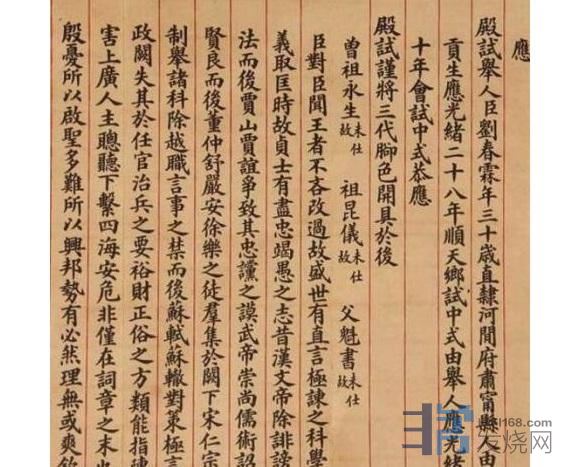 應
殿試舉人臣劉春霖年三十歲直隸河間府肅甯縣人由
貢生應光緒二十八年順天鄉試中式由舉人應光緒
十年會試中式恭應
殿試謹將三代腳色開具於後
曾祖永生未仕故 祖昆儀未仕故 父魁書未仕故
臣對臣聞王者不吝改過故盛世有直言極諫之科學
義取匡時故貞士有盡忠竭愚之志昔漢文帝除誹謗
法而後賈山賈誼爭致其忠讜之謨武帝崇尚儒術詔
賢良而後董仲舒嚴安徐樂之徒羣集於闕下宋仁宗
制舉諸科除越職言事之禁而後蘇軾蘇轍對策極言
政闕失其於任官治兵之要裕財正俗之方類能指陳
害上廣人主聰聽下繫四海安危非僅在詞章之末
殷憂所以啟聖多難所以興邦勢有必然理無或爽欽
发烧网